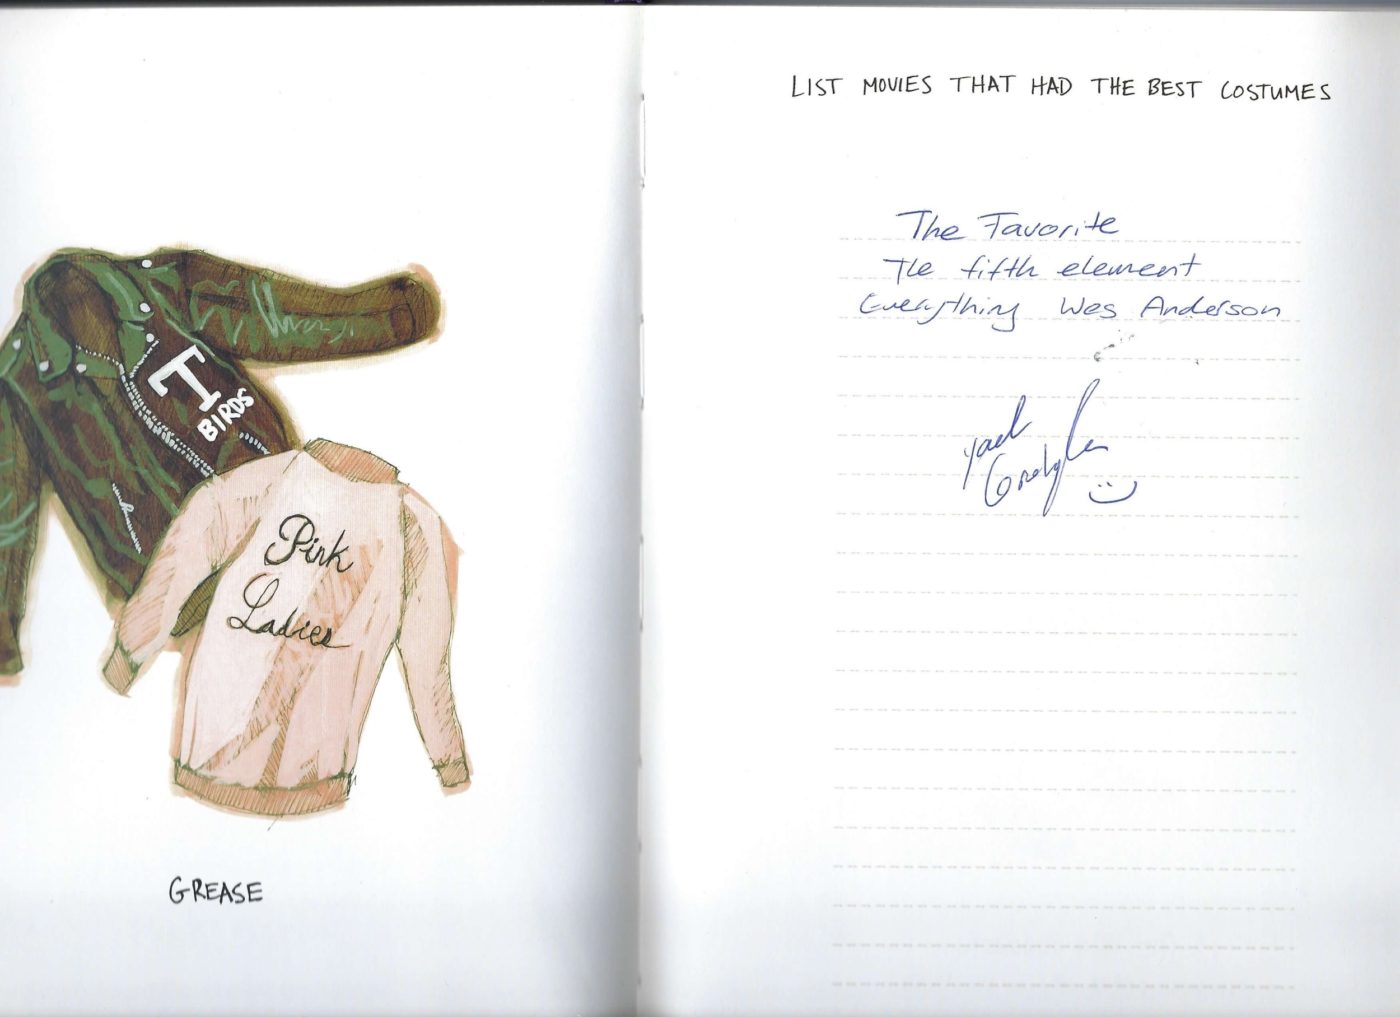 T
BIRDS
Pink
Ladies
GREASE
LIST MOVIES THAT HAD THE BEST COSTUMES
The Favorite
The fifth element
Everything Wes Anderson
Yael